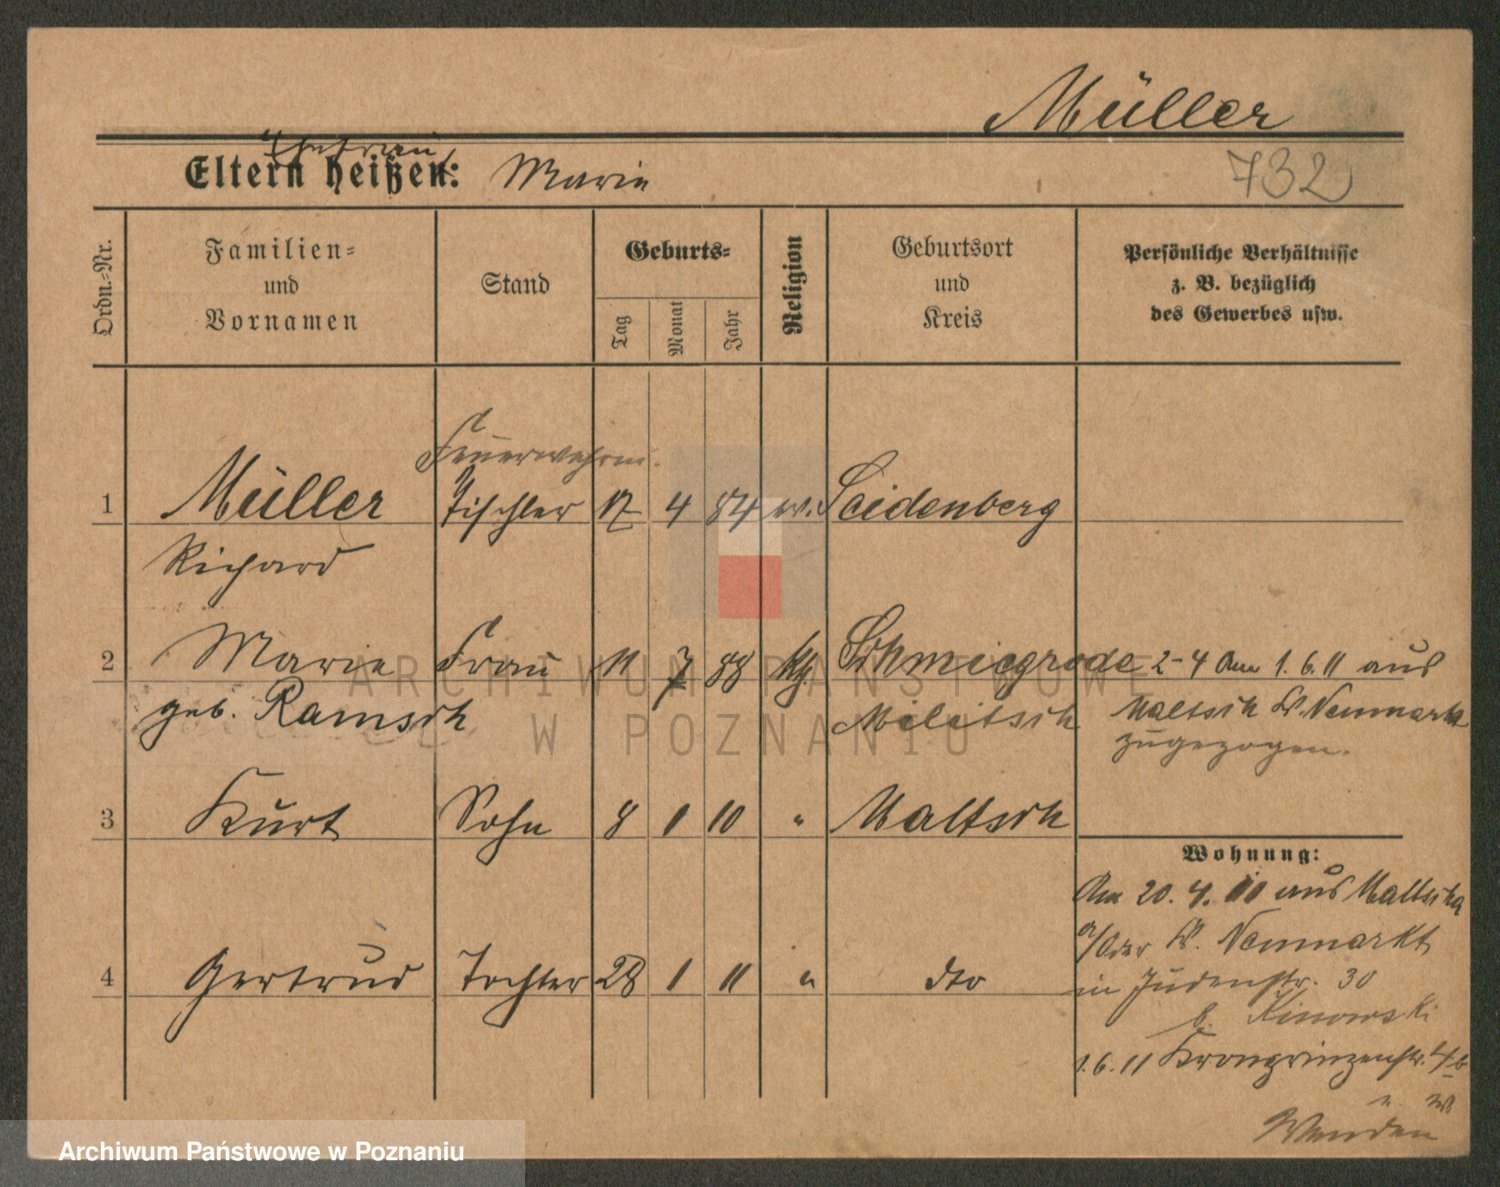 Müller
Ehefrau
Eltern heißen: Marie
732
Ordn.-Nr.
Familien-
und
Vornamen
Stand
Geburts-
Tag
Monat
Jahr
Religion
Geburtsort
und
Kreis
Persönliche Verhältnisse
z. B. bezüglich
des Gewerbes usw.
Feuerwehrm.
1 Müller Tischler 17 4 84 ev. Seidenberg
Richard
2 Marie Frau 11 7 88 kg. Schmiegrode 2-4 am 1.6.11 aus
geb. Ramsch Militsch Maltsch Kr. Neumarkt
zugezogen.
3 Kurt Sohn 8 1 10 " Maltsch
Wohnung:
Am 20.4.10 aus Maltsch
a/Oder Kr. Neumarkt
4 Gertrud Tochter 28 1 11 " dto
in Judenstr. 30
b. Kinowski
1.6.11 Kronprinzenstr.
ARCHIWUM PAŃSTWOWE
W POZNANIU
Archiwum Państwowe w Poznaniu